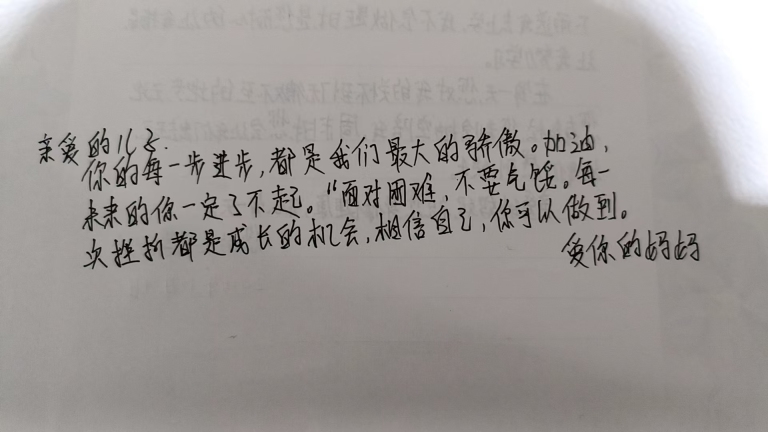 亲爱的儿子.
你的每一步进步,都是我们最大的骄傲。加油,
未来的你一定了不起。“面对困难,不要气馁。每一
次挫折都是成长的机会,相信自己,你可以做到。
爱你的妈妈